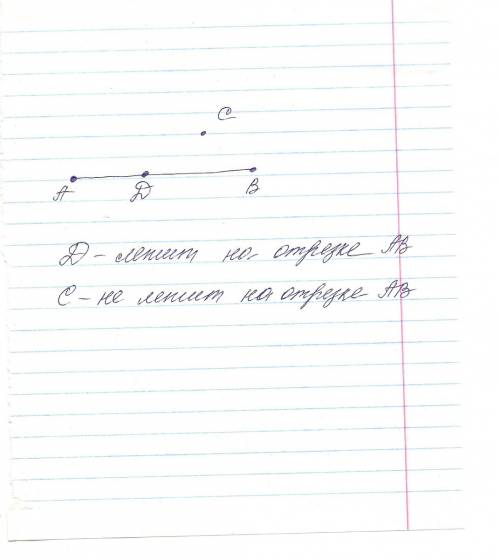 C
A Д B
Д - лежит на отрезке AB
C - не лежит на отрезке AB